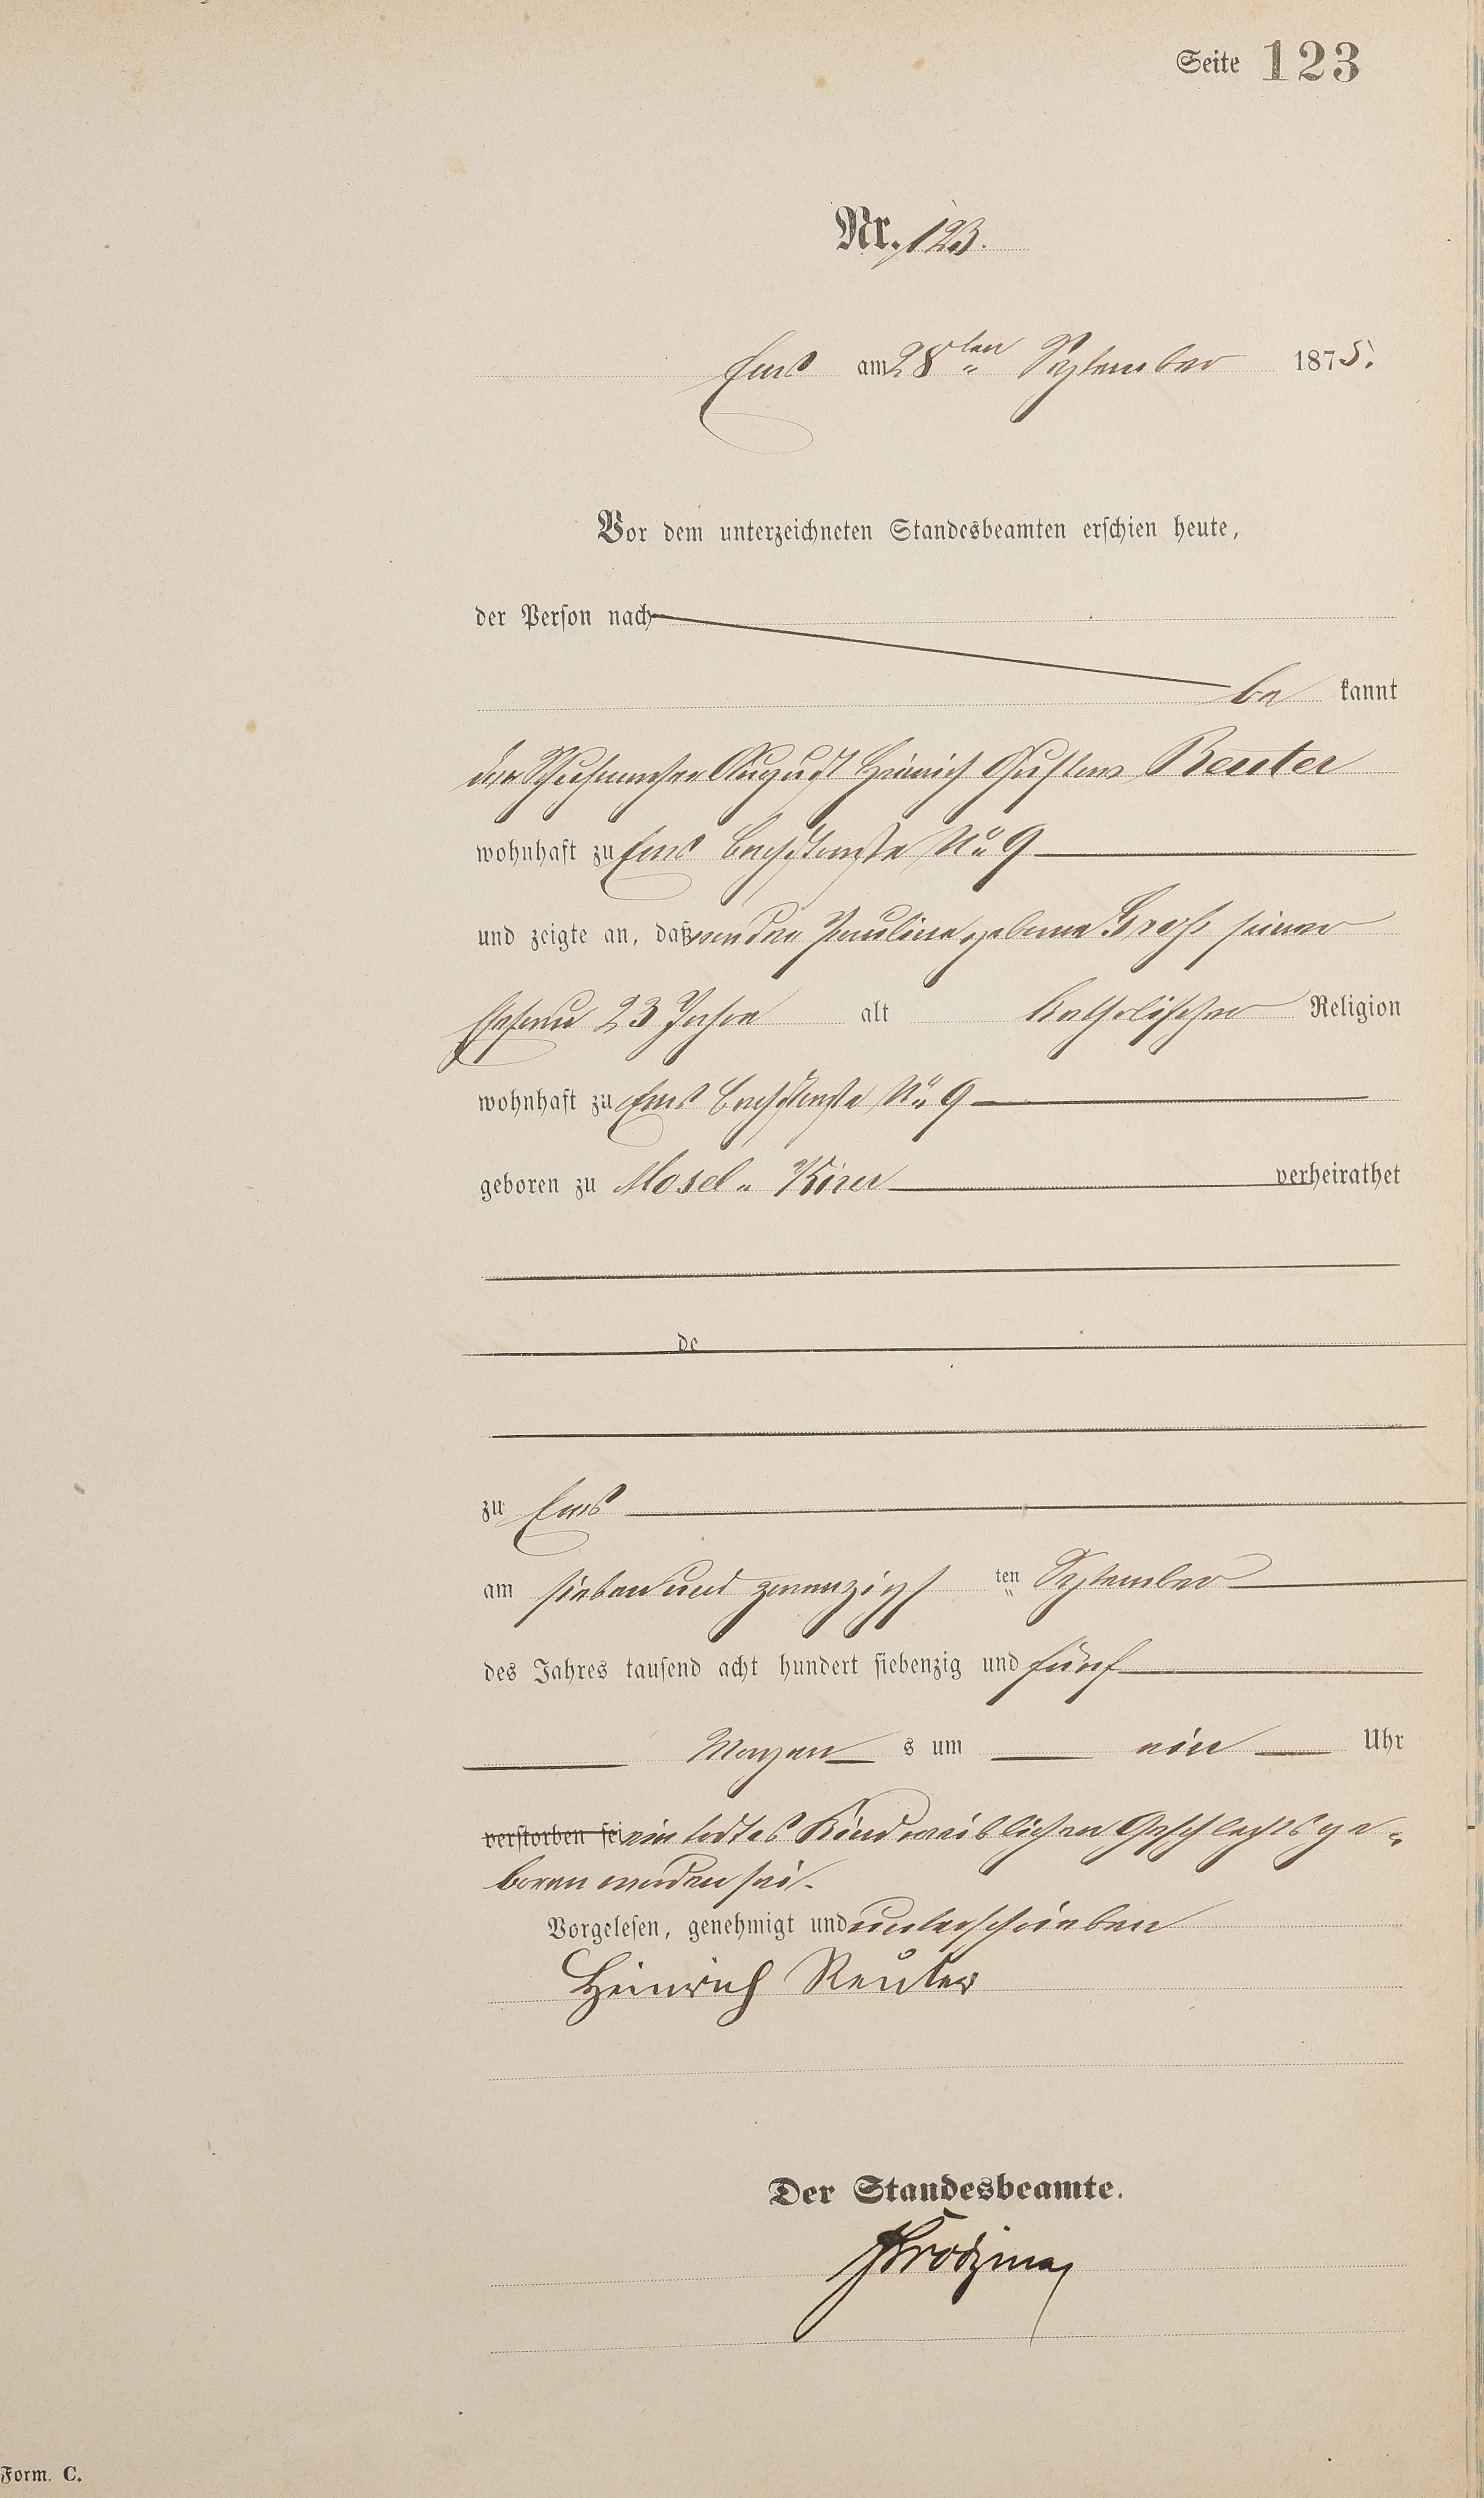 Seite 123
Nr. 123.
Ems am 28ten September 1875.
Vor dem unterzeichneten Standesbeamten erschien heute,
der Person nach
be kannt
der Schuhmacher August Heinrich Gustav Reuter
wohnhaft zu Ems Bachstraße No 9
und zeigte an, daß von der Pauline geborene Groß seiner
Ehefrau 23 Jahre alt katholischer Religion
wohnhaft zu Ems Bachstraße No 9
geboren zu Mosel-Kern verheirathet
de
zu Ems
am sieben und zwanzigsten September
des Jahres tausend acht hundert siebenzig und fünf
Morgen s um ein Uhr
verstorben sei ein todtes Kind weiblichen Geschlechts ge-
boren worden sei.
Vorgelesen, genehmigt und unterschrieben
Heinrich Reuter
Der Standesbeamte.
Form. C.